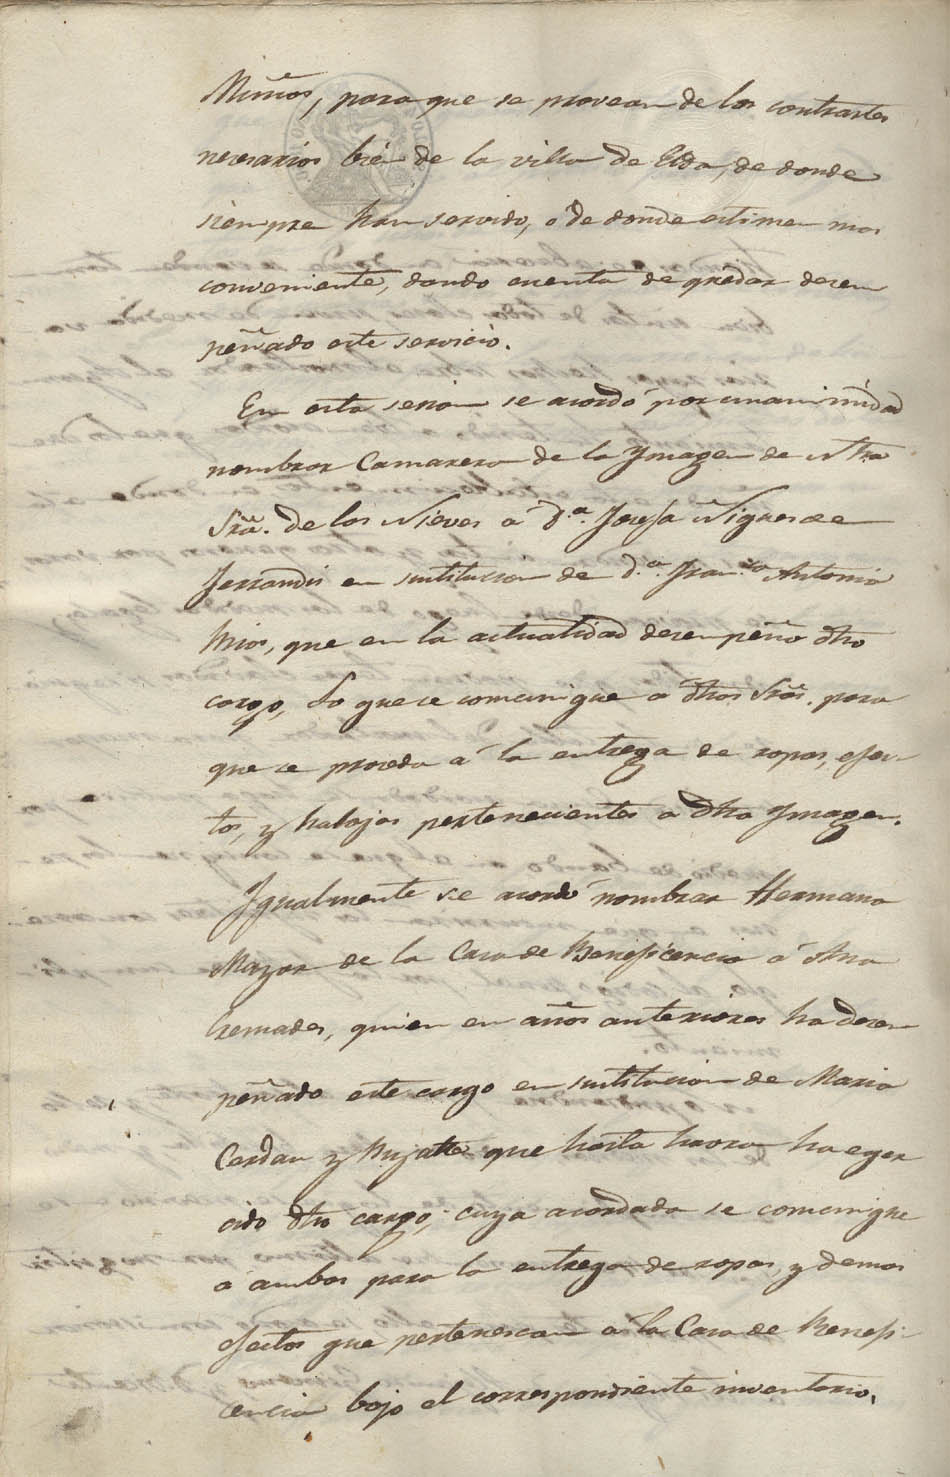 Miños, para que se provean de los contrastes
necesarios bien de la villa de Elda, de donde
siempre han servido, o de donde estimen mas
conveniente, dando cuenta de quedar desem
peñado este servicio.
En esta sesion se acordó por unanimidad
nombrar Camarera de la Ymagen de Ntra
Sra. de las Nieves a D.ª Josefa Ñigues de
Ferrandis en sustitucion de D.ª Fran.ca Antonia
Mios, que en la actualidad desempeña dho
cargo, Lo que se comunique a dhas Sras. para
que se proceda á la entrega de ropas, efec-
tos, y halajas pertenecientes a dha Ymagen.
Igualmente se acordó nombrar Hermana
Mayor de la Casa de Beneficencia á Ana
Cremades, quien en años anteriores ha desem
peñado este cargo en sustitucion de Maria
Cerdan y Mujatto que hasta haora ha eger
cido dho cargo; cuya acordada se comunique
a ambas para la entrega de ropas, y demas
efectos que pertenescan a la Casa de Benefi-
cencia bajo el correspondiente inventario.